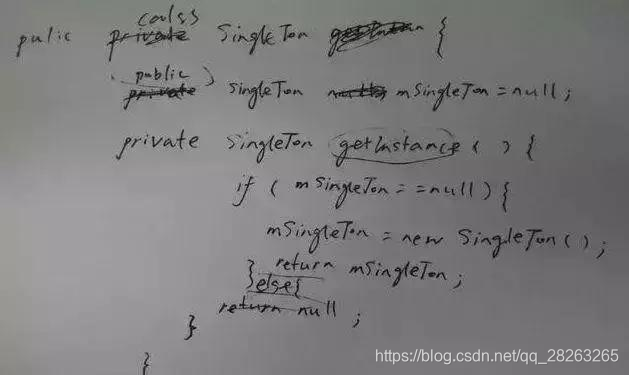 pulic coulss SingleTon {
public SingleTon mSingleTon = null ;
private SingleTon getInstance ( ) {
if ( mSingleTon = = null ) {
mSingleTon = new SingleTon ( ) ;
return mSingleTon ;
} else {
return null ;
}
}
https://blog.csdn.net/qq_28263265